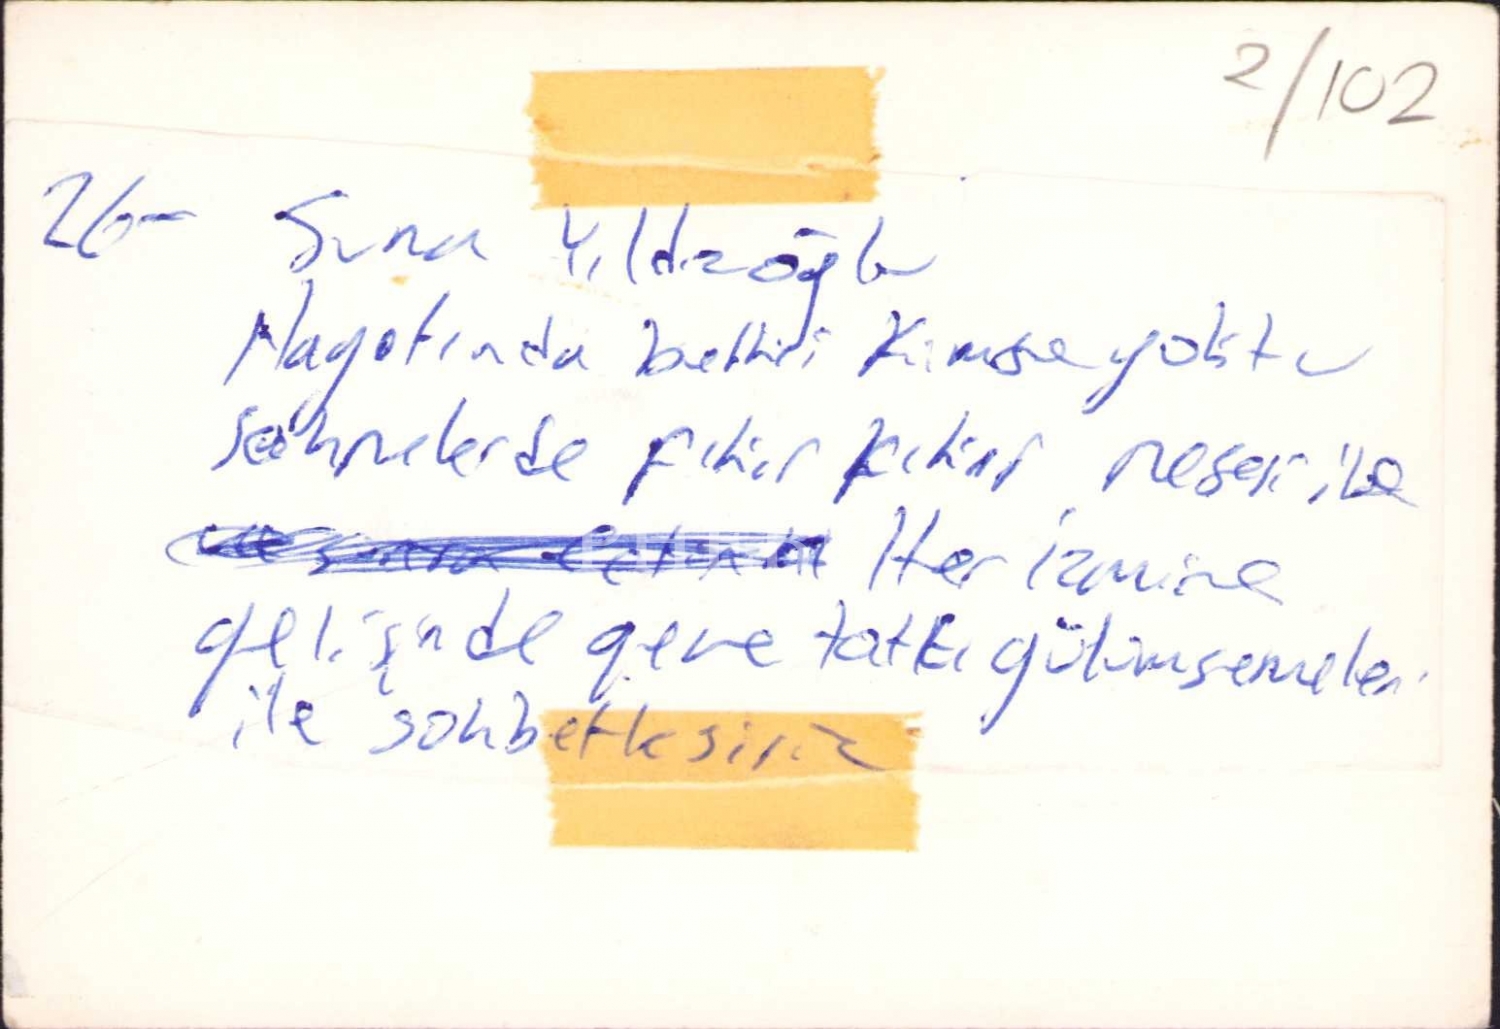 2/102
26- Suna Yıldızoğlu
Hayatında belkisi kimse yoktu
Sahnelerde fıkır kıkır neşesi ile
Her İzmire
gelişinde gene tatlı gülümsemeleri
ile sohbetlesiriz